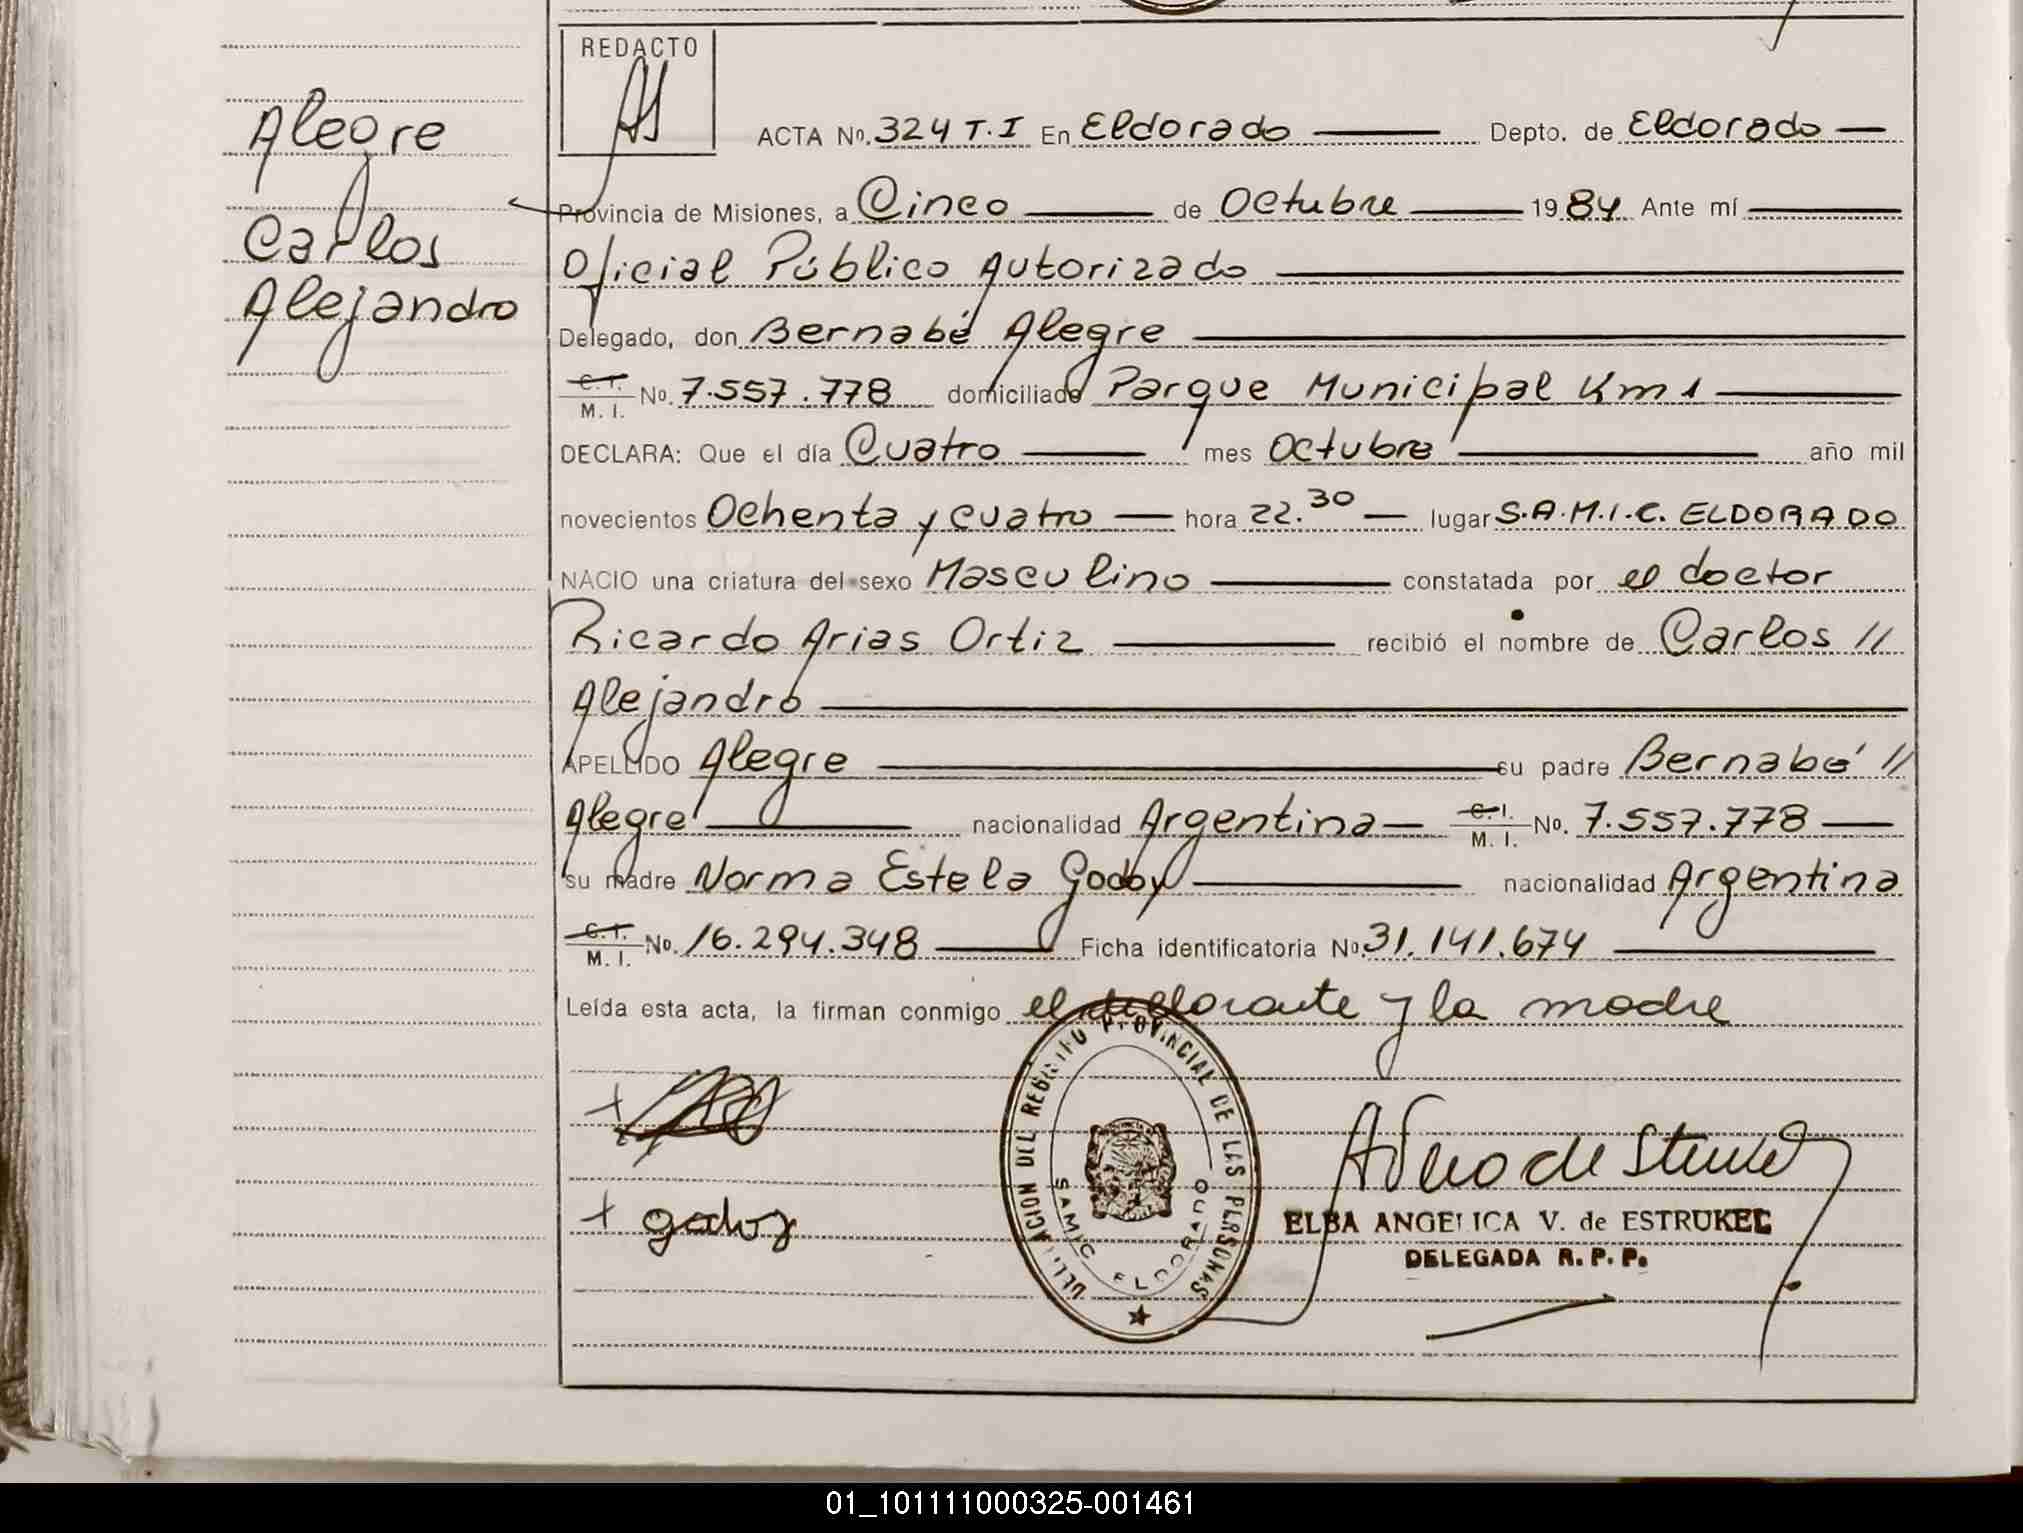 REDACTO
ACTA Nº. 324 T.I En Eldorado Depto. de Eldorado
Alegre
Carlos
Alejandro
Provincia de Misiones, a Cinco de Octubre 1984 Ante mí
Oficial Público Autorizado
Delegado, don Bernabé Alegre
C.I. M. I. Nº. 7.557.778 domiciliado Parque Municipal Km 1
DECLARA: Que el día Cuatro mes Octubre año mil
novecientos Ochenta y cuatro hora 22.30 lugar S.A.M.I.C. ELDORADO
NACIO una criatura del sexo Masculino constatada por el doctor
Ricardo Arias Ortiz recibió el nombre de Carlos //
Alejandro
APELLIDO Alegre su padre Bernabé //
Alegre nacionalidad Argentina C.I. M. I. Nº. 7.557.778
su madre Norma Estela Godoy nacionalidad Argentina
C.I. M. I. Nº. 16.294.348 Ficha identificatoria Nº. 31.141.674
Leída esta acta, la firman conmigo el declarante y la madre
DELEGACION DEL REGISTRO PROVINCIAL DE LAS PERSONAS
SAMIC ELDORADO
+
+ godoy
ELBA ANGELICA V. de ESTRUKEL
DELEGADA R. P. P.
01_101111000325-001461